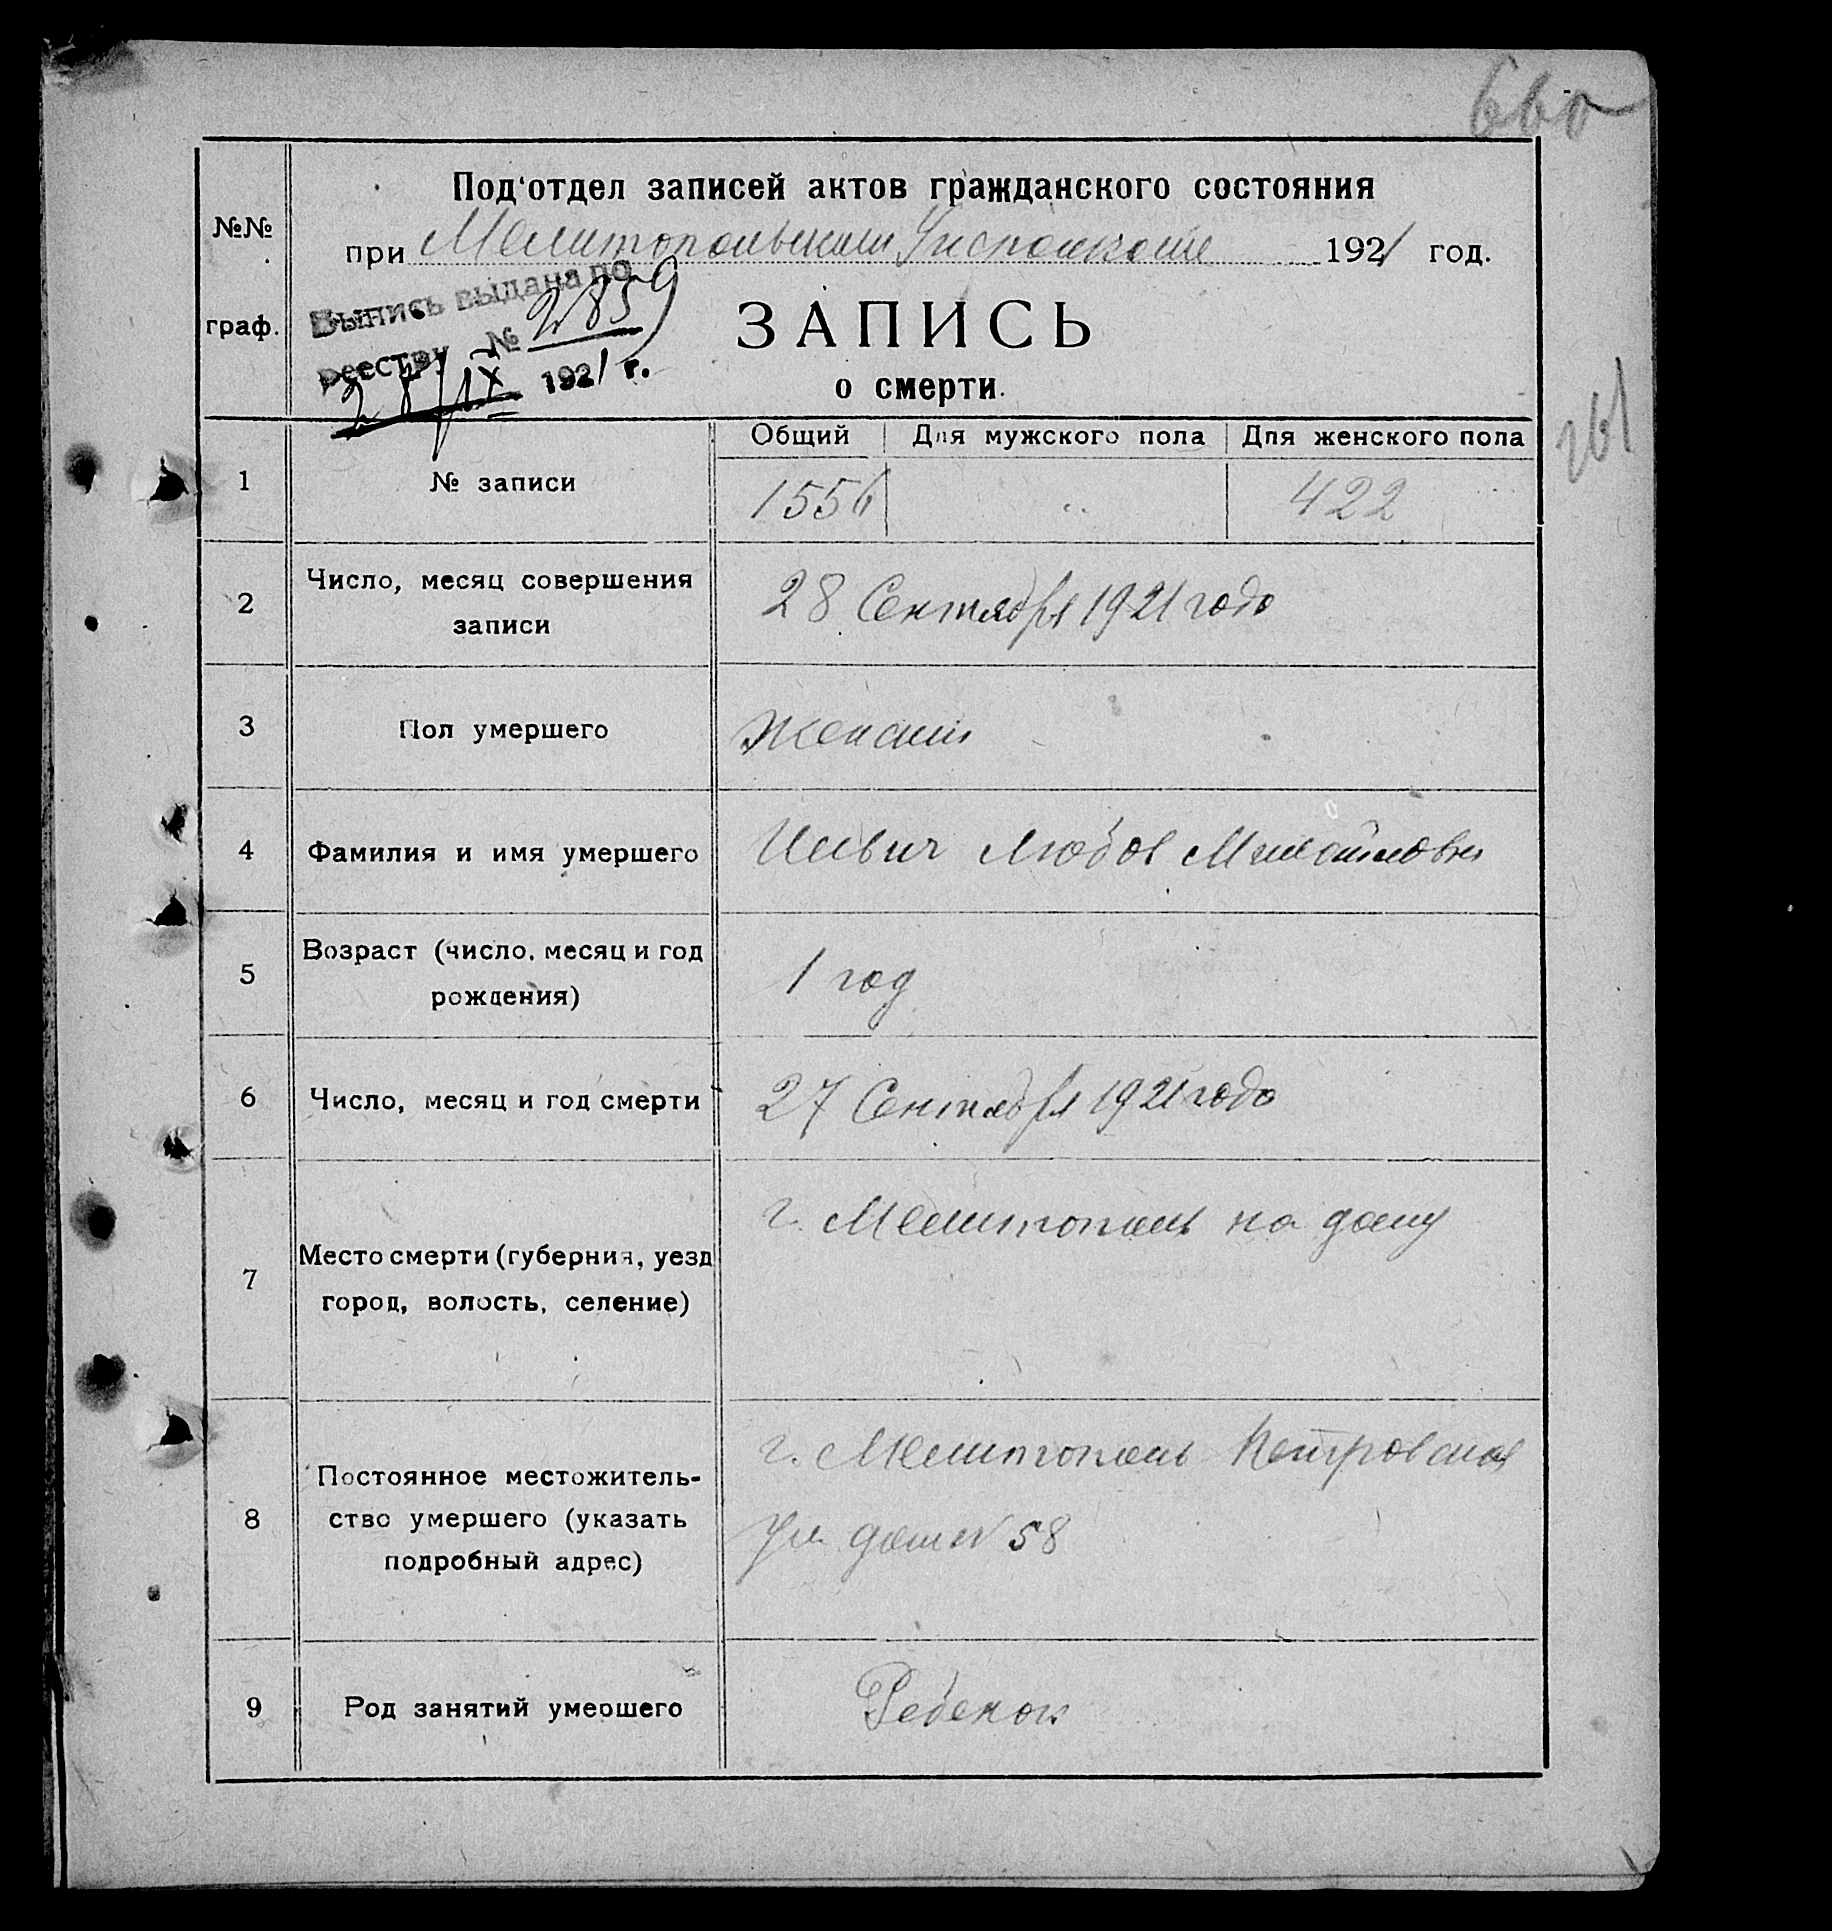 660
Под'отдел записей актов гражданского состояния
№№
граф.
при Мелитопольском Уисполкоме 1921 год.
Выпись выдана по
реестру № 2859
28/IX 1921 г.
ЗАПИСЬ
о смерти.
261
Общий Для мужского пола Для женского пола
1 № записи 1556 " 422
2 Число, месяц совершения
записи
28 Сентября 1921 года
3 Пол умершего Женский
4 Фамилия и имя умершего Любов Михайловна
5 Возраст (число, месяц и год
рождения)
1 год
6 Число, месяц и год смерти 27 Сентября 1921 года
7 Место смерти (губерния, уезд
город, волость, селение)
г. Мелитополь на дому
8 Постоянное местожитель-
ство умершего (указать
подробный адрес)
г. Мелитополь Петровская
ул. дом № 58
9 Род занятий умершего Ребенок